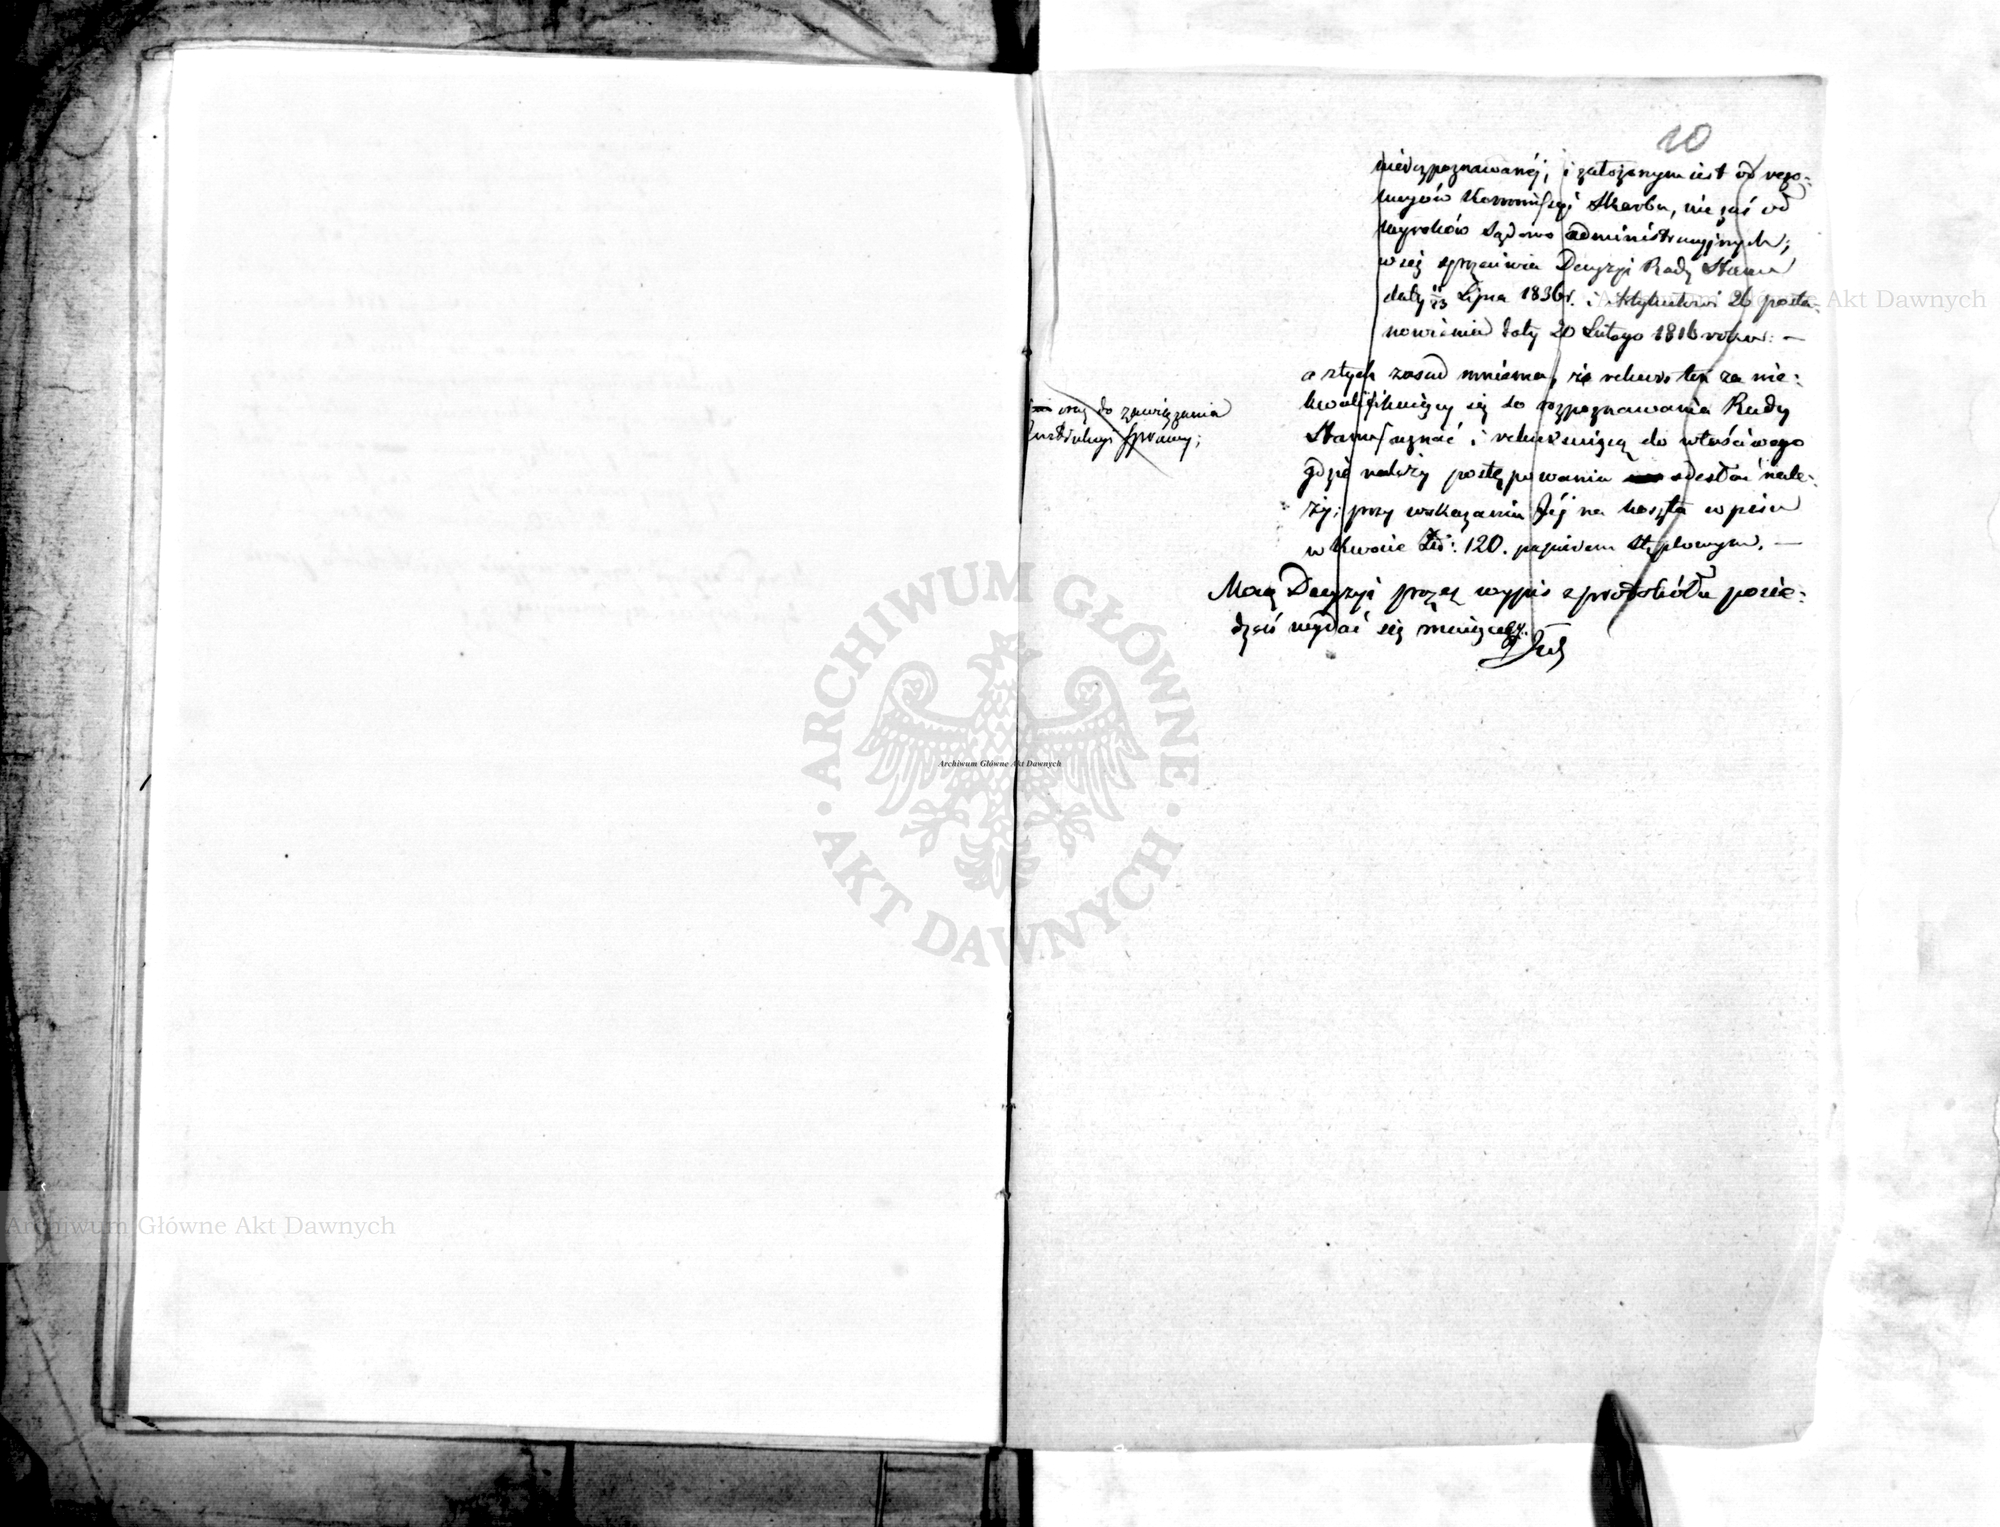 20
nierozpoznawanéj, i założonym iest od rezo-
lucyów Kommissyi Skarbu, nie zaś od
wyroków Sądowo administracyjnych;
w sej sprzeciwia Decyzyi Rady Stanu
daty 11/23 Lipca 1836 r. i Artykułowi 26 posta-
nowienia daty 20 Lutego 1816 roku: —
a z tych zasad mniema, iż rekurs ten za nie-
kwalifikuiący się do rozpoznawania Rady
Stanu uznać i rekurruiącą do właściwego
gdzie należy postępowania odesłać nale-
ży; przy wskazaniu Jéj na koszta wpisu
w kwocie Złł: 120. papierem stęplowym. —
oraz do zawiązania
Instrukcyi sprawy;
Mocą Decyzyi przez wypis z protokółu posie-
dzeń wydać się maiącéy.
Archiwum Główne Akt Dawnych
ARCHIWUM GŁÓWNE AKT DAWNYCH
Archiwum Główne Akt Dawnych
Archiwum Główne Akt Dawnych